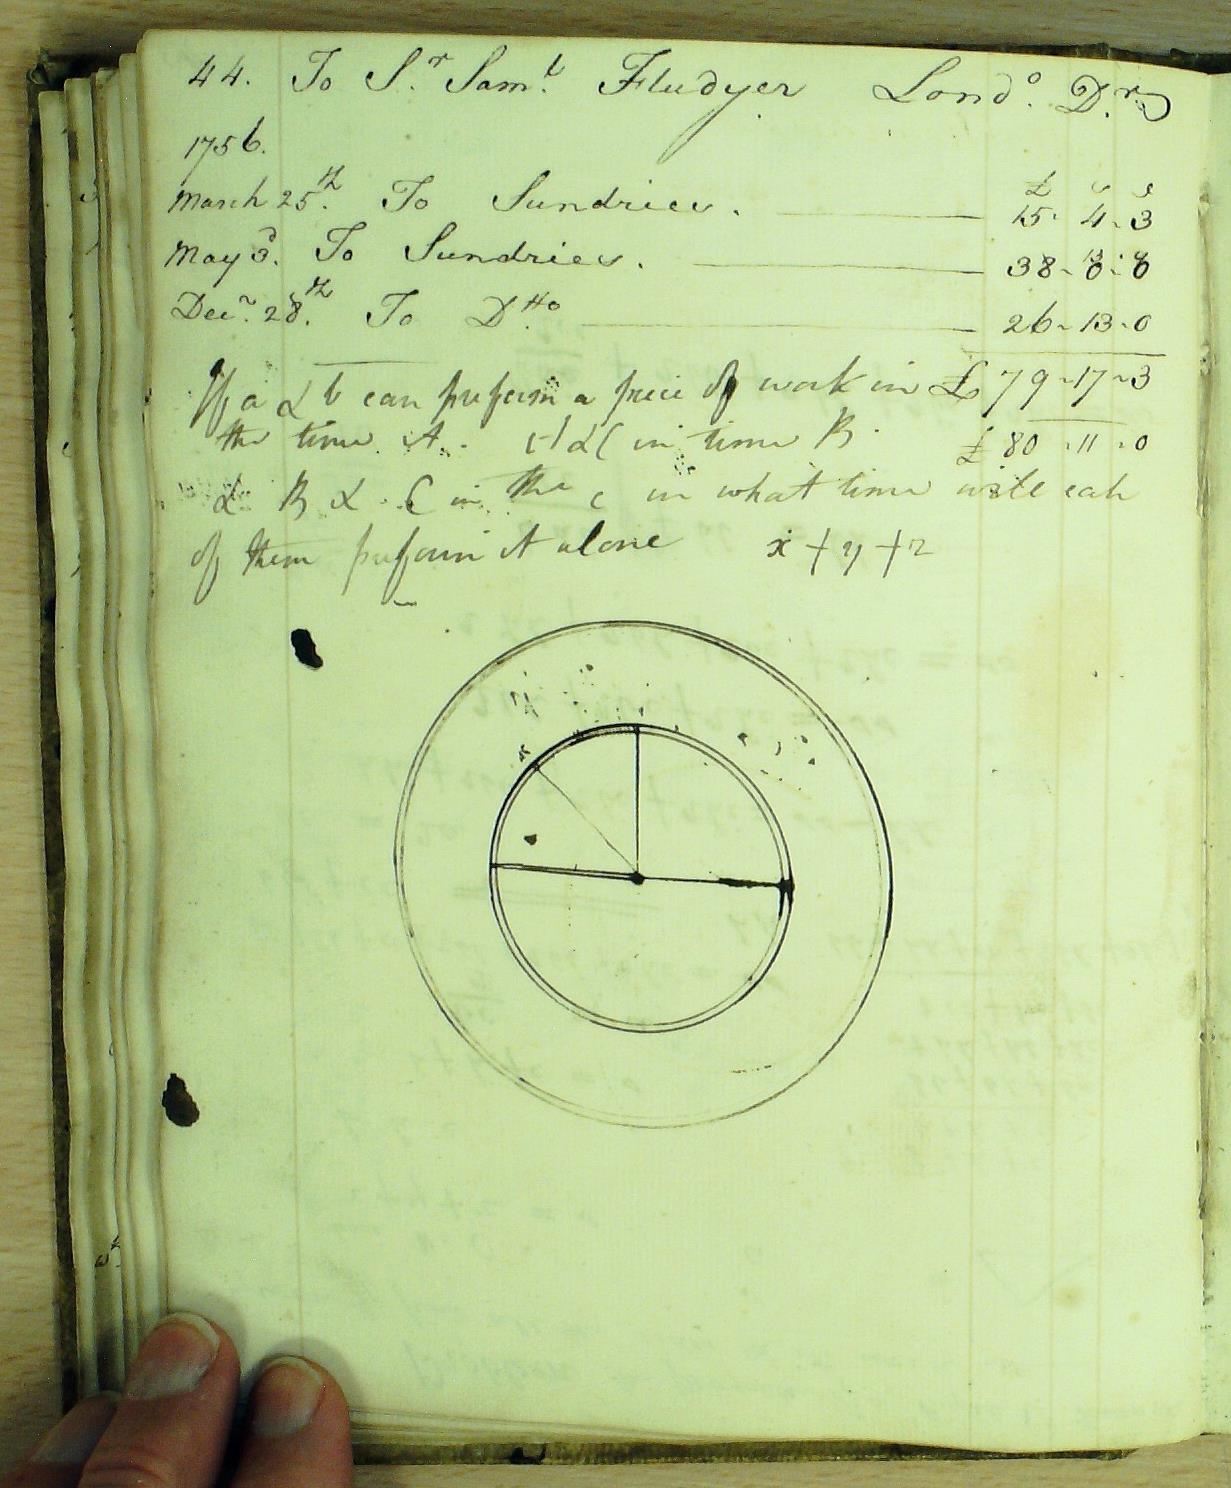 44. To Sr. Saml. Fludyer Londo. Drs
1756.
£ s
March 25th. To Sundries. 15. 4. 3
May 3d. To Sundries. 38-0:0
Decr. 28th. To Dtto 26-13-0
If a & b can preform a piece of work in £79-17-3
the time A. & C in time B. £80-11-0
& B & C in the c in what time will eah
of them preform it alone x + y + z